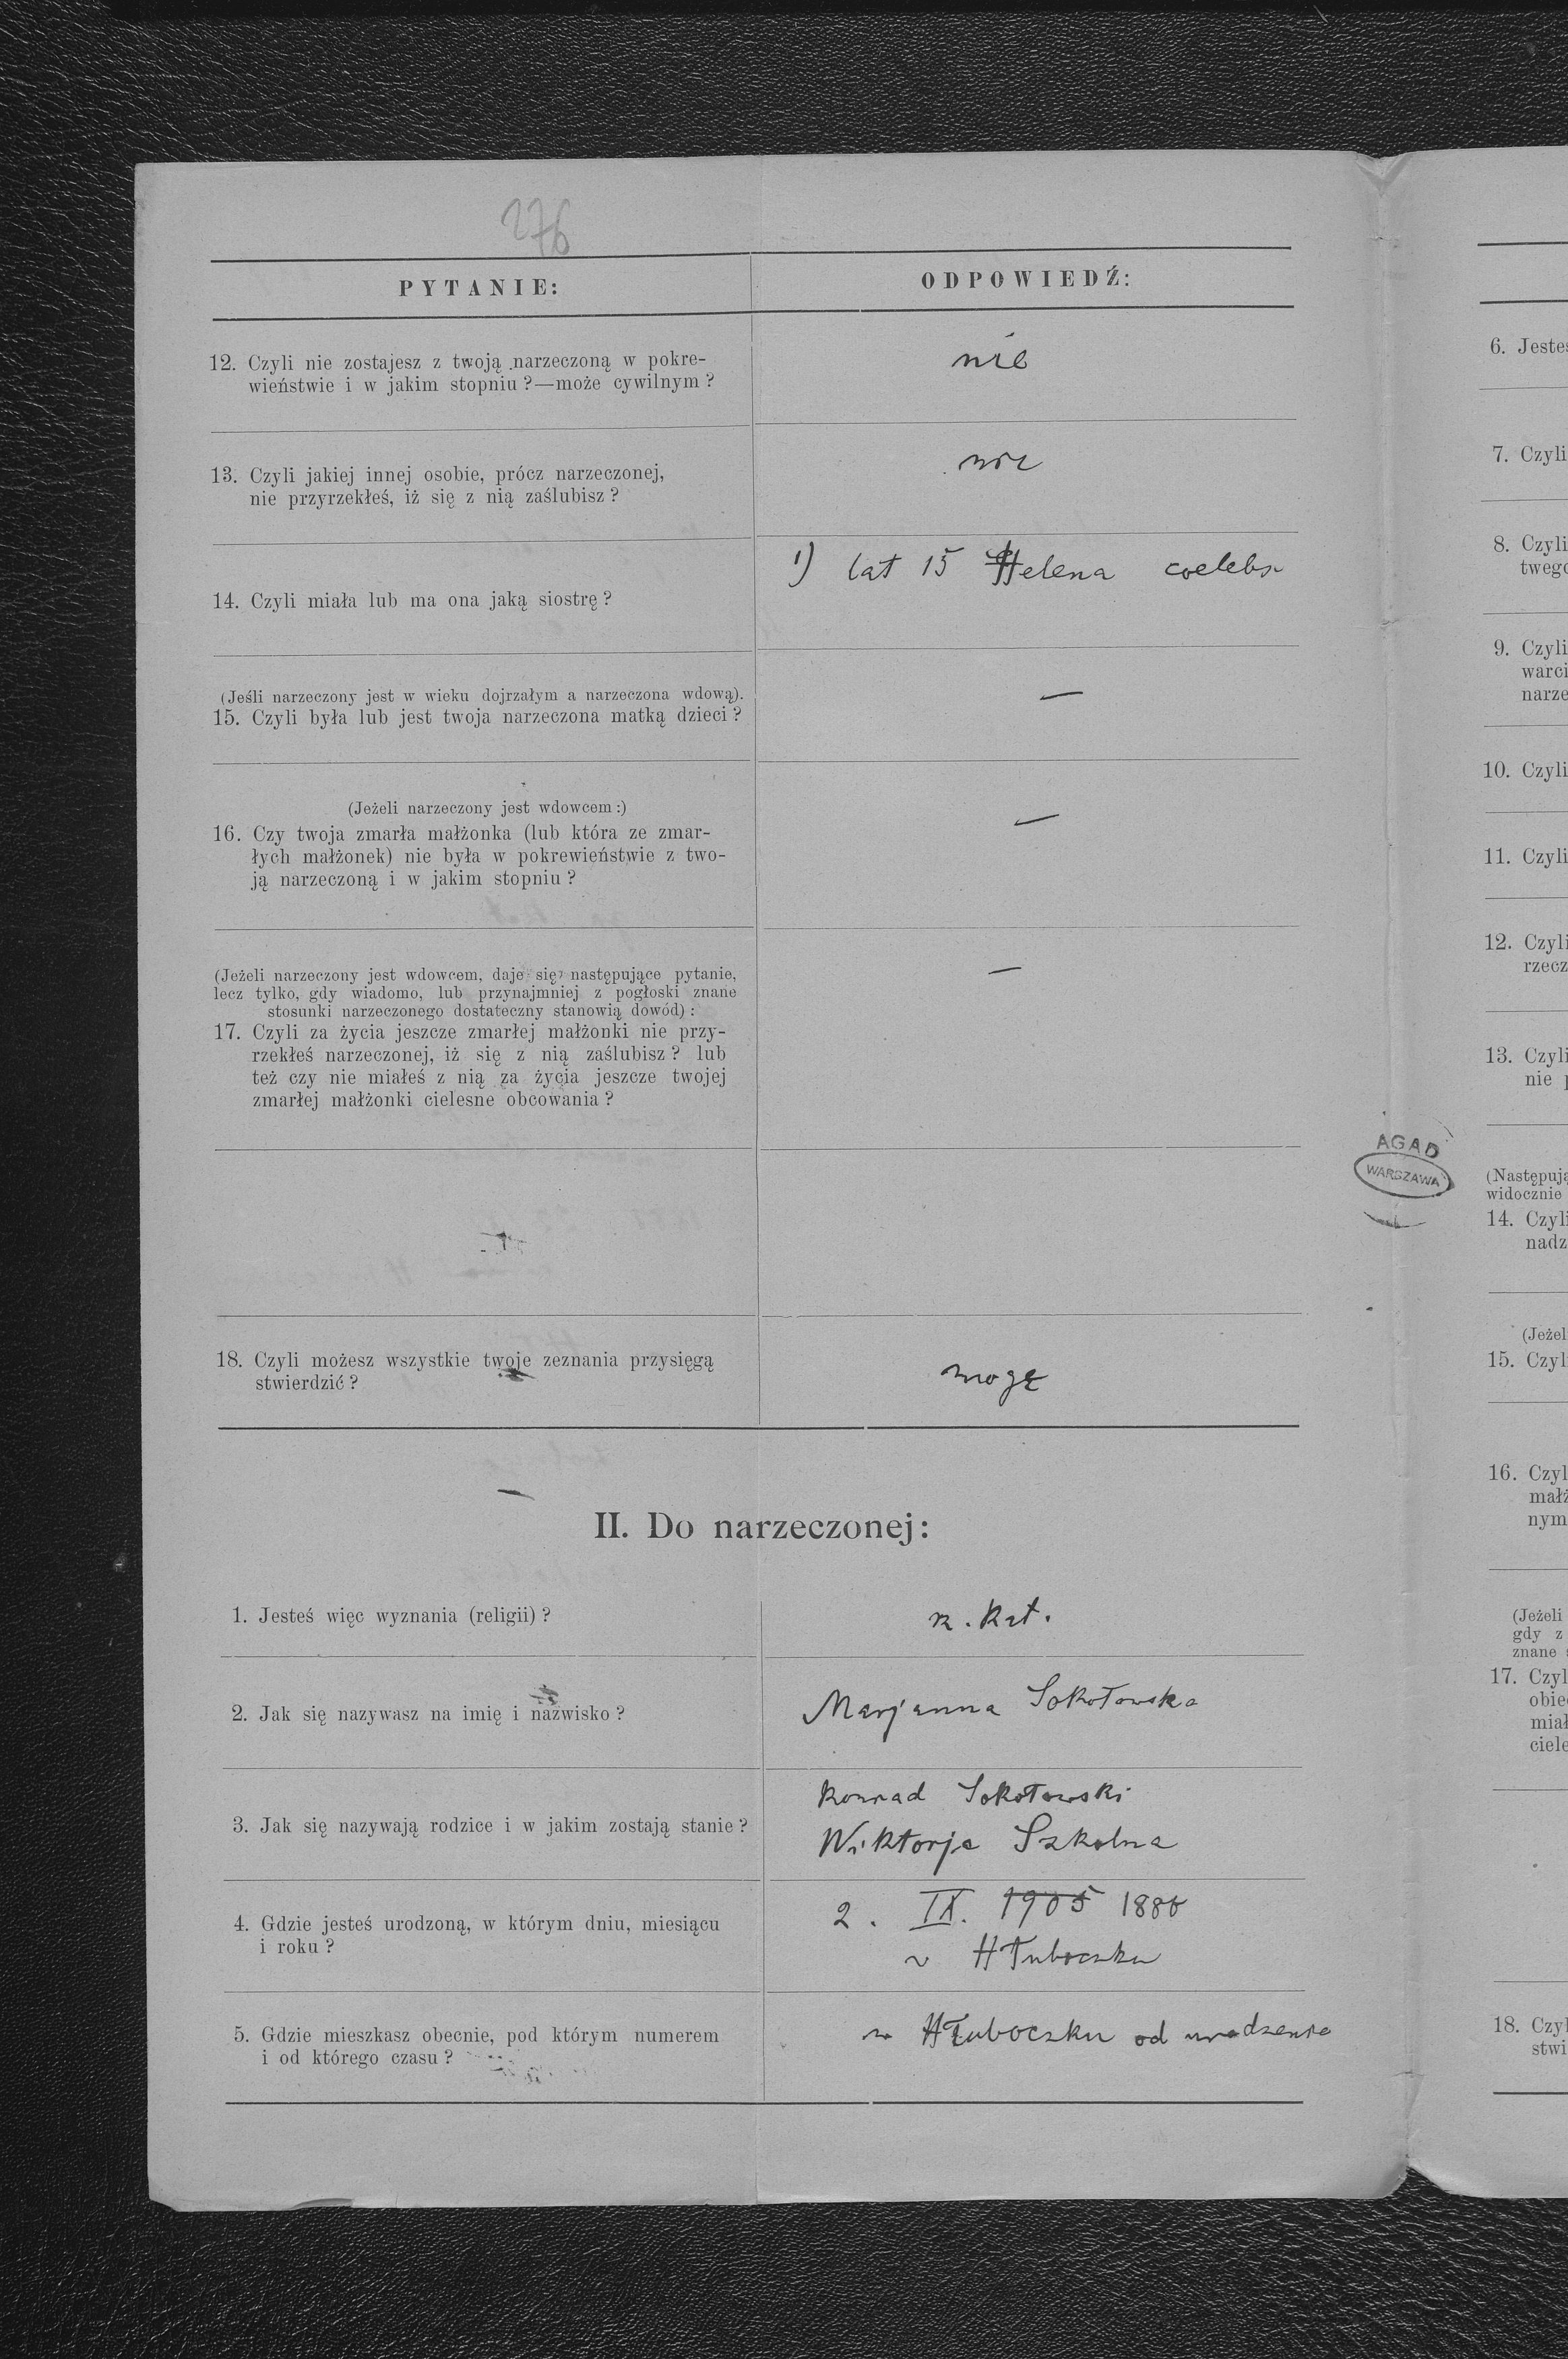 276
PYTANIE:
ODPOWIEDŹ:
12. Czyli nie zostajesz z twoją narzeczoną w pokre-
wieństwie i w jakim stopniu?—może cywilnym?
nie
13. Czyli jakiej innej osobie, prócz narzeczonej,
nie przyrzekłeś, iż się z nią zaślubisz?
nie
14. Czyli miała lub ma ona jaką siostrę?
1) lat 15 Helena coelebs
(Jeśli narzeczony jest w wieku dojrzałym a narzeczona wdową).
15. Czyli była lub jest twoja narzeczona matką dzieci?
—
(Jeżeli narzeczony jest wdowcem:)
16. Czy twoja zmarła małżonka (lub która ze zmar-
łych małżonek) nie była w pokrewieństwie z two-
ją narzeczoną i w jakim stopniu?
—
(Jeżeli narzeczony jest wdowcem, daje się następujące pytanie,
lecz tylko, gdy wiadomo, lub przynajmniej z pogłoski znane
stosunki narzeczonego dostateczny stanowią dowód):
17. Czyli za życia jeszcze zmarłej małżonki nie przy-
rzekłeś narzeczonej, iż się z nią zaślubisz? lub
też czy nie miałeś z nią za życia jeszcze twojej
zmarłej małżonki cielesne obcowania?
—
18. Czyli możesz wszystkie twoje zeznania przysięgą
stwierdzić?
mogę
II. Do narzeczonej:
1. Jesteś więc wyznania (religii)?
r. kat.
2. Jak się nazywasz na imię i nazwisko?
Marjanna Sokołowska
3. Jak się nazywają rodzice i w jakim zostają stanie?
Konrad Sokołowski
Wiktorja Szkolna
4. Gdzie jesteś urodzoną, w którym dniu, miesiącu
i roku?
2. IX. 1905 1886
w Hłuboczku
5. Gdzie mieszkasz obecnie, pod którym numerem
i od którego czasu?
w Hłuboczku od urodzenia
AGAD
WARSZAWA
6. Jesteś
7. Czyli
8. Czyli
twego
9. Czyli
warci
narze
10. Czyli
11. Czyli
12. Czyli
rzecz
13. Czyli
nie p
(Następują
widocznie
14. Czyli
nadz
(Jeżel
15. Czyl
16. Czyl
małż
nym
(Jeżeli
gdy z
znane s
17. Czyl
obie
miał
ciele
18. Czyl
stwi